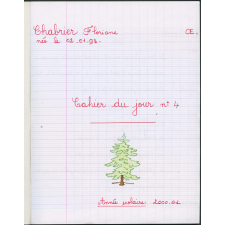 Chabrier Floriane CE.
née le 02.01.94.
Cahier du jour n° 4
Année scolaire : 2000.01